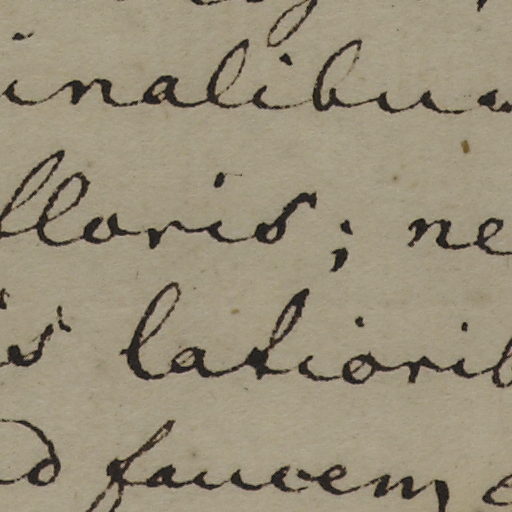 inalibu
llaris; ne
is latiorib
d faucem,